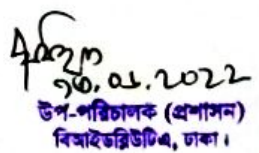 ১৩.০১.2022
উপ-পরিচালক (প্রশাসন)
বিআইডব্লিউটিএ, ঢাকা।